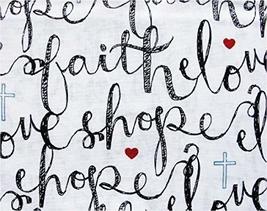 is faith love
love hope
hope love